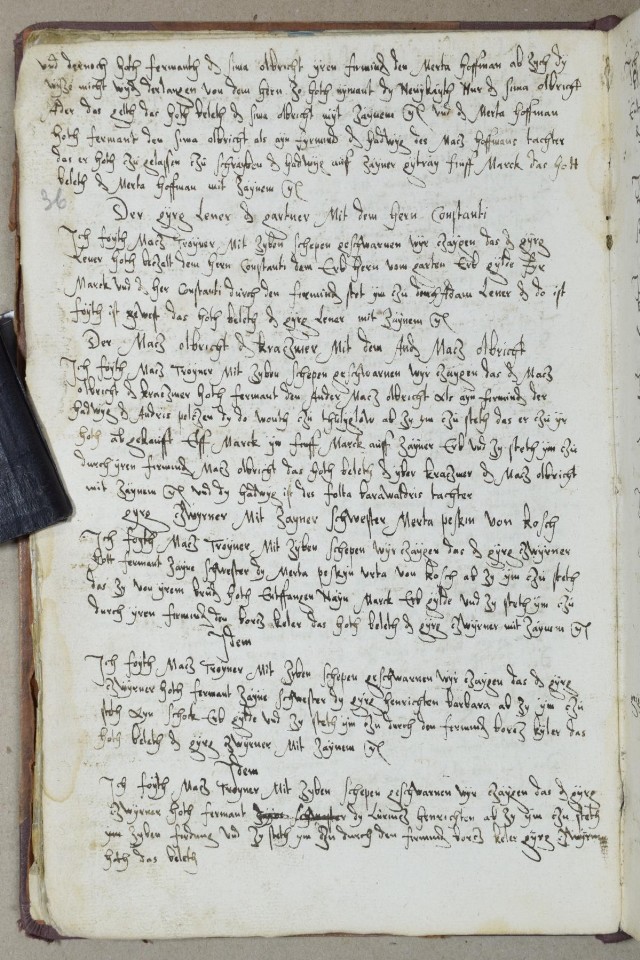 vnd dernoch hoth fermanth d sima olbricht yren firmind den Merta hoffman ab zych dy
wyste nicht wyder derlangen von dem hern zo hoth nymant dy Neyikayth Nur d sima olbricht
Ader das gelth das hoth beleth d sima olbricht myt Zaynem vnd d Merta hoffman
hoth fermant den sima olbricht als ayn fyrmind d hadwyg des Macz hoffmans tachter
das er hoth czu gelassen czu schrayben d hadwyg auff zayner gytray finff Marck das hott
beleth d Merta hoffman mit Zaynem
36
Der gyrg Lener d gartner Mit dem hern Constanti
Ich foyth Macz Troyner Mit Zyben schepen geschwarnen wyr czaygen das d gyrg
Lener hoth beczalt dem hern Constanti dem Erb hern vom garten Erb gylde fyr
Marck vnd d her Constanti durch den firmind stet ym czu Adam Lener d do ist
foyth ist gewest das hoth beleth d gyrg Lener mit Zaynem
Der Macz olbricht d kraczmer Mit dem And Macz olbricht
Ich foyth Macz Troyner Mit Zyben schepen geschwarnen wyr czaygen das d Macz
olbricht d kraczmer hoth fermant den Ander Macz olbricht als ayn firmind der
hadwyg d Andris polczen dy do wonth czu ab zy ym czu steth das er czu yr
hoth ab gekaufft Elff Marck ym finff Marck auff Zayner Erb vnd zy steth ym czu
durch yren firmind Macz olbricht das hoth beleth d yber kraczmer d Macz olbricht
mit Zaynem vnd dy hadwyg ist des folta tachter
gyrg Czwyrner Mit Zayner schwester Merta peskin von kosch
Ich foyth Macz Troyner Mit Zyben schepen wyr czaygen das d gyrg Czwyrner
hott fermant Zayne schwester dy Merta peskyn von kosch ab zy ym czu steth
das zy von yrem brud hoth Entffangen Nayn Marck Erb gylde vnd zy steth ym czu
durch yren firmind den borcz keler das hoth beleth d gyrg Czwyrner mit Zaynem
Idem
Ich foyth Macz Troyner Mit Zyben schepen geschwarnen wyr czaygen das d gyrg
Czwyrner hoth fermant Zayne schwester dy gyrg henrichten barbara ab zy ym czu
steth ayn schok Erb gylde vnd zy steth ym czu durch den fermind borcz kyler das
hoth beleth d gyrg Czwyrner Mit Zaynem
Idem
Ich foyth Macz Troyner Mit Zyben schepen geschwarnen wyr czaygen das d gyrg
Czwyrner hoth fermant dy Lorencz henrichten ab zy ym czu steth
ym zyben firdung vnd zy steth ym czu durch den firmind borcz keler gyrg Czwyrner
hoth das beleth